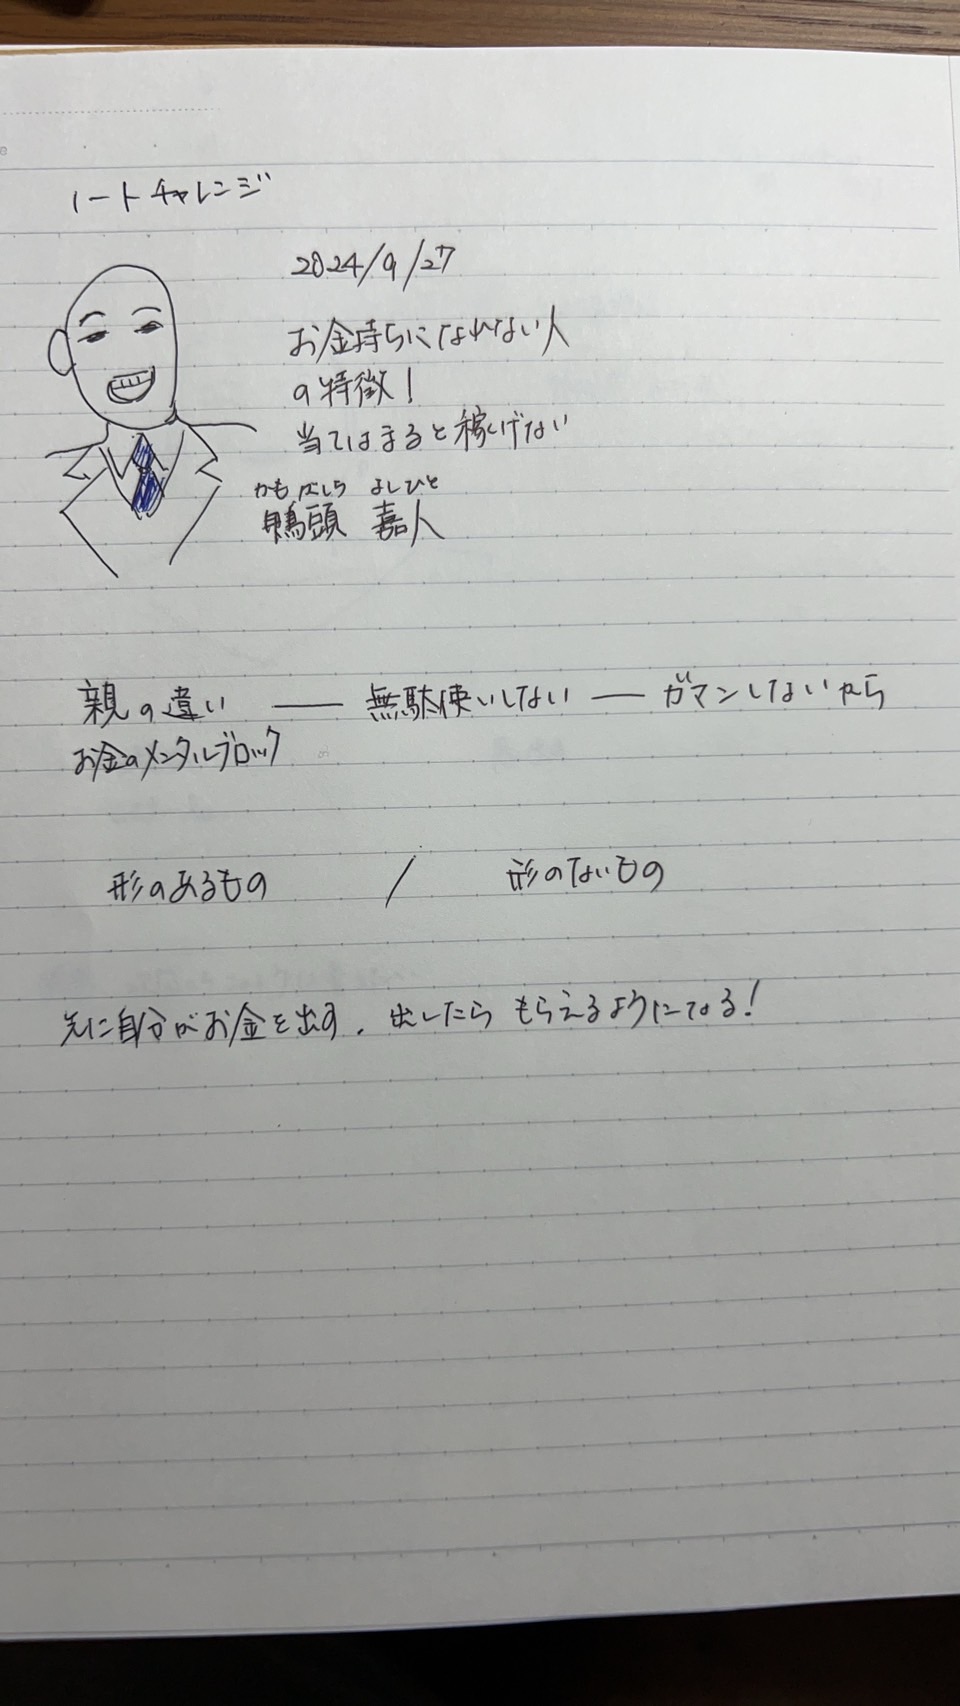 ノートチャレンジ
2024/9/27
お金持ちになれない人
の特徴！
当てはまると稼げない
かもがしら よしひと
鴨頭 嘉人
親の違い ― 無駄使いしない ― ガマンしないから
お金のメンタルブロック
形のあるもの / 形のないもの
先に自分がお金を出す、出したらもらえるようになる!